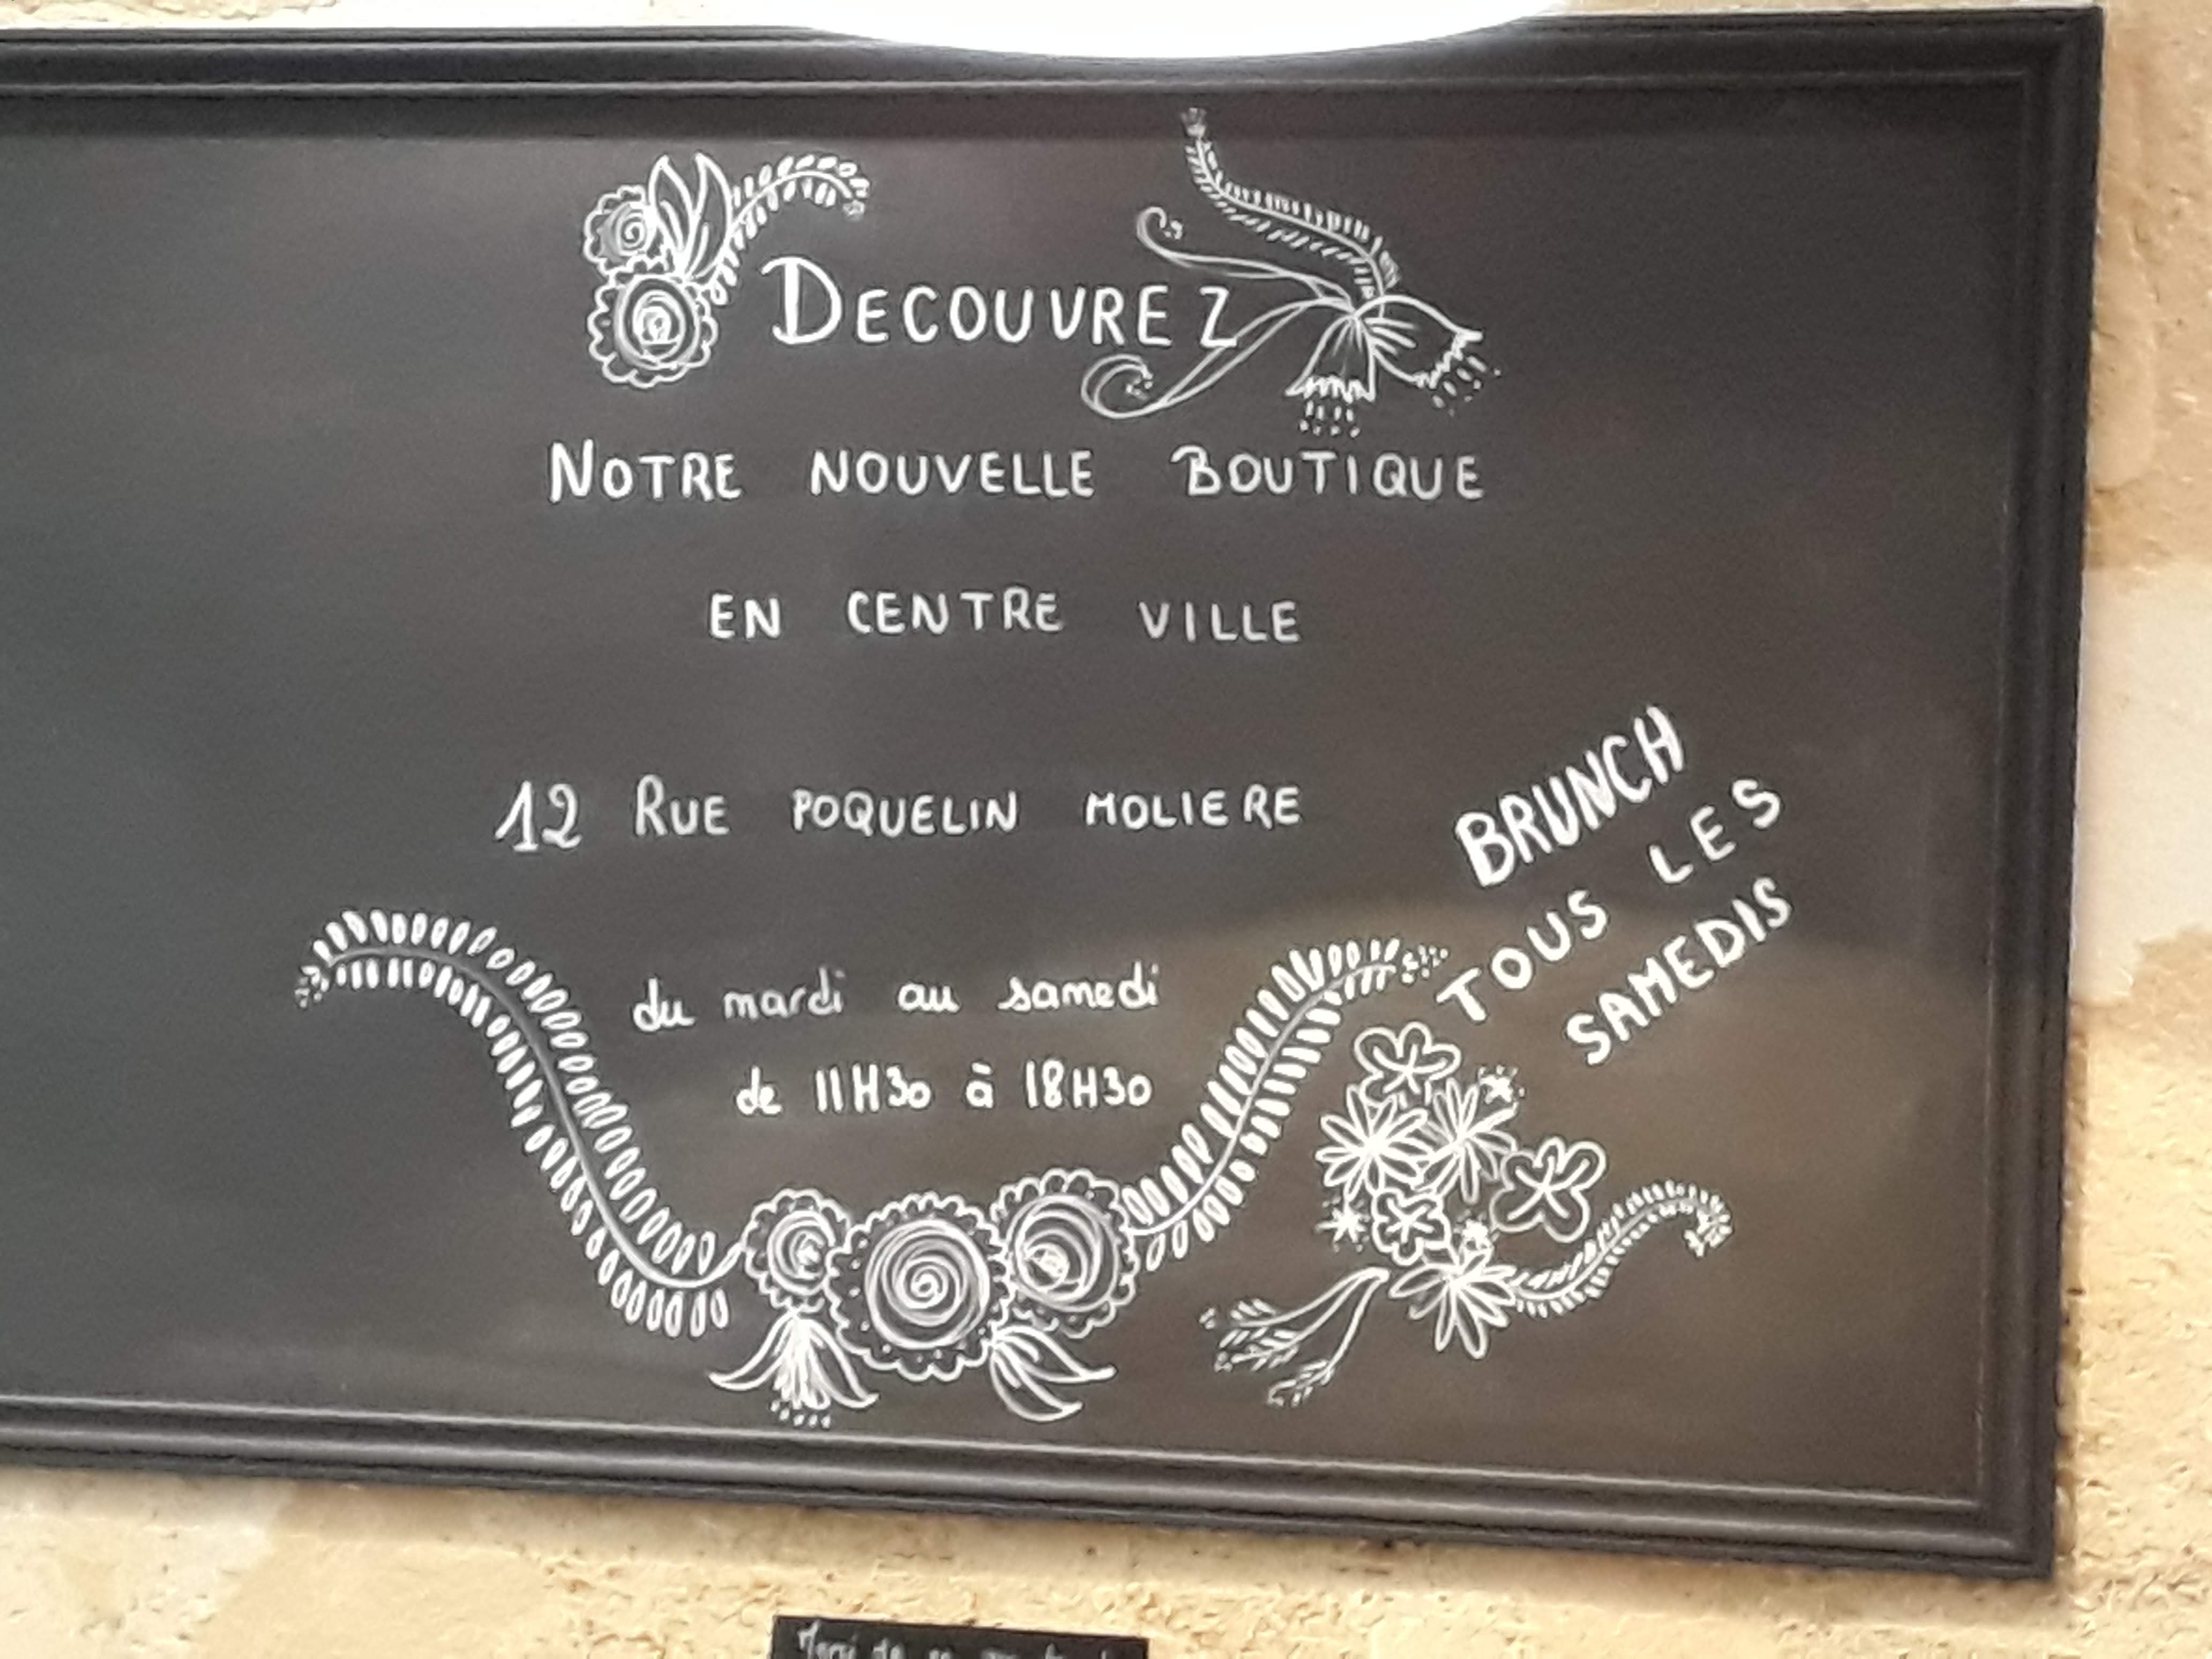 DECOUVREZ
NOTRE NOUVELLE BOUTIQUE
EN CENTRE VILLE
12 RUE POQUELIN MOLIERE
du mardi au samedi
de 11H30 à 18H30
BRUNCH
TOUS LES
SAMEDIS
Merci de